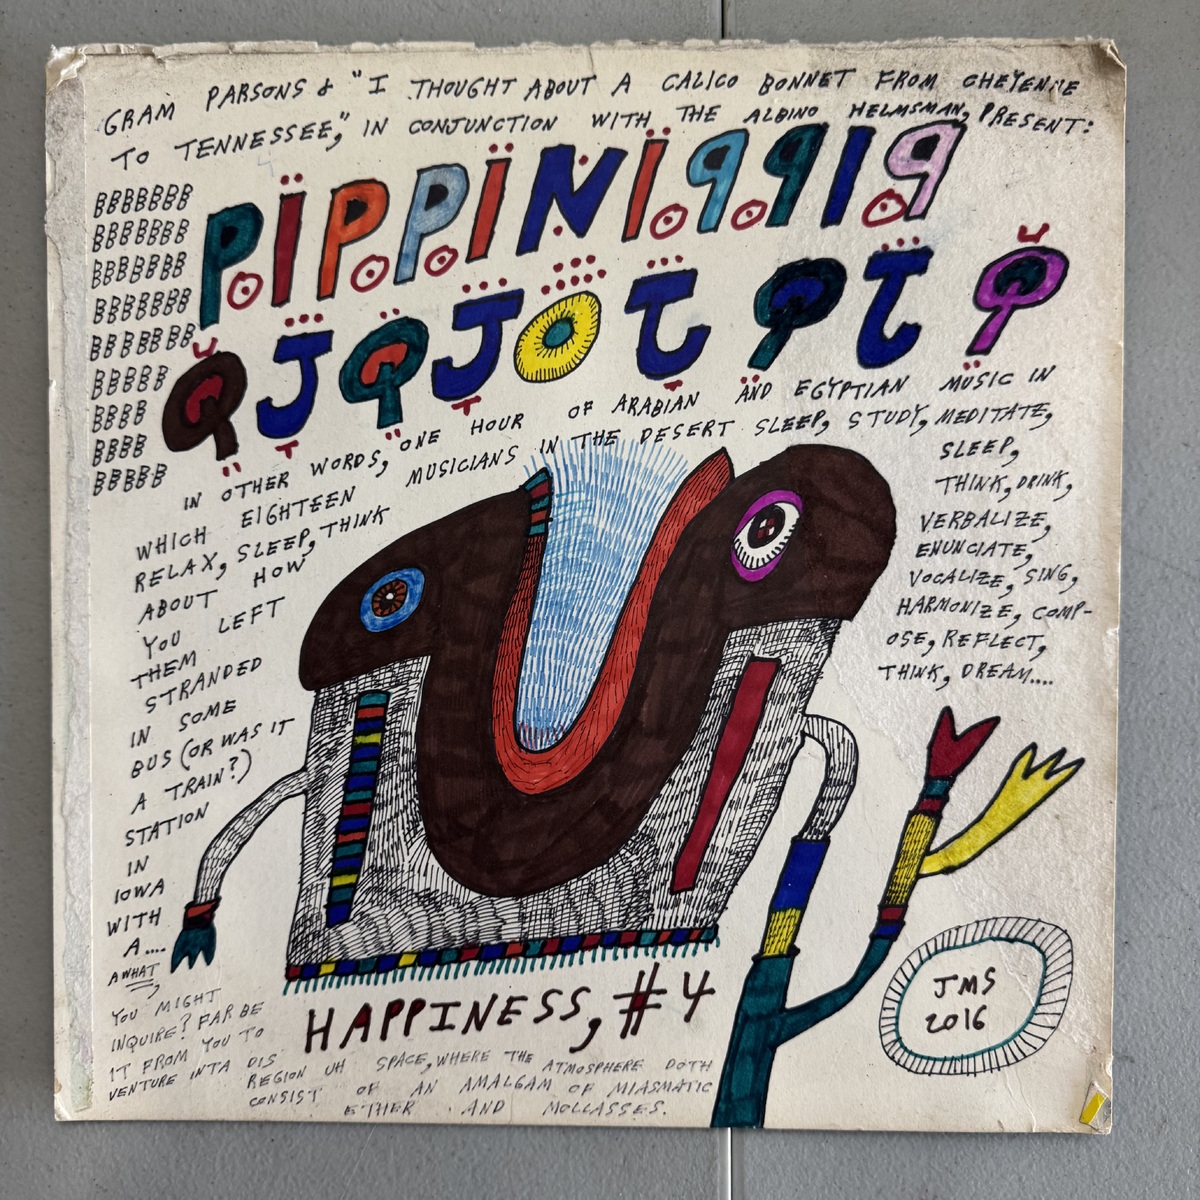 GRAM PARSONS & "I THOUGHT ABOUT A CALICO BONNET FROM CHEYENNE
TO TENNESSEE," IN CONJUNCTION WITH THE ALBINO HELMSMAN, PRESENT:
BBBBBBB
BBBBBBB
BBBBBBB
BBBBBBB
BBBBBBB
BBBBB
BBBB
BBBB
BBBBB
PÏPPÏNÏ9919
QJQJOTQTQ
IN OTHER WORDS, ONE HOUR OF ARABIAN AND EGYPTIAN MUSIC IN
WHICH EIGHTEEN MUSICIANS IN THE DESERT SLEEP, STUDY, MEDITATE,
RELAX, SLEEP, THINK
ABOUT HOW
YOU LEFT
THEM
STRANDED
IN SOME
BUS (OR WAS IT
A TRAIN?)
STATION
IN
IOWA
WITH
A....
A WHAT,
YOU MIGHT
INQUIRE? FAR BE
IT FROM YOU TO
VENTURE INTA DIS
REGION UH SPACE, WHERE THE ATMOSPHERE DOTH
CONSIST OF AN AMALGAM OF MIASMATIC
ETHER AND MOLLASSES.
SLEEP,
THINK, DRINK,
VERBALIZE,
ENUNCIATE,
VOCALIZE, SING,
HARMONIZE, COMP-
OSE, REFLECT,
THINK, DREAM....
HAPPINESS, #4
JMS
2016